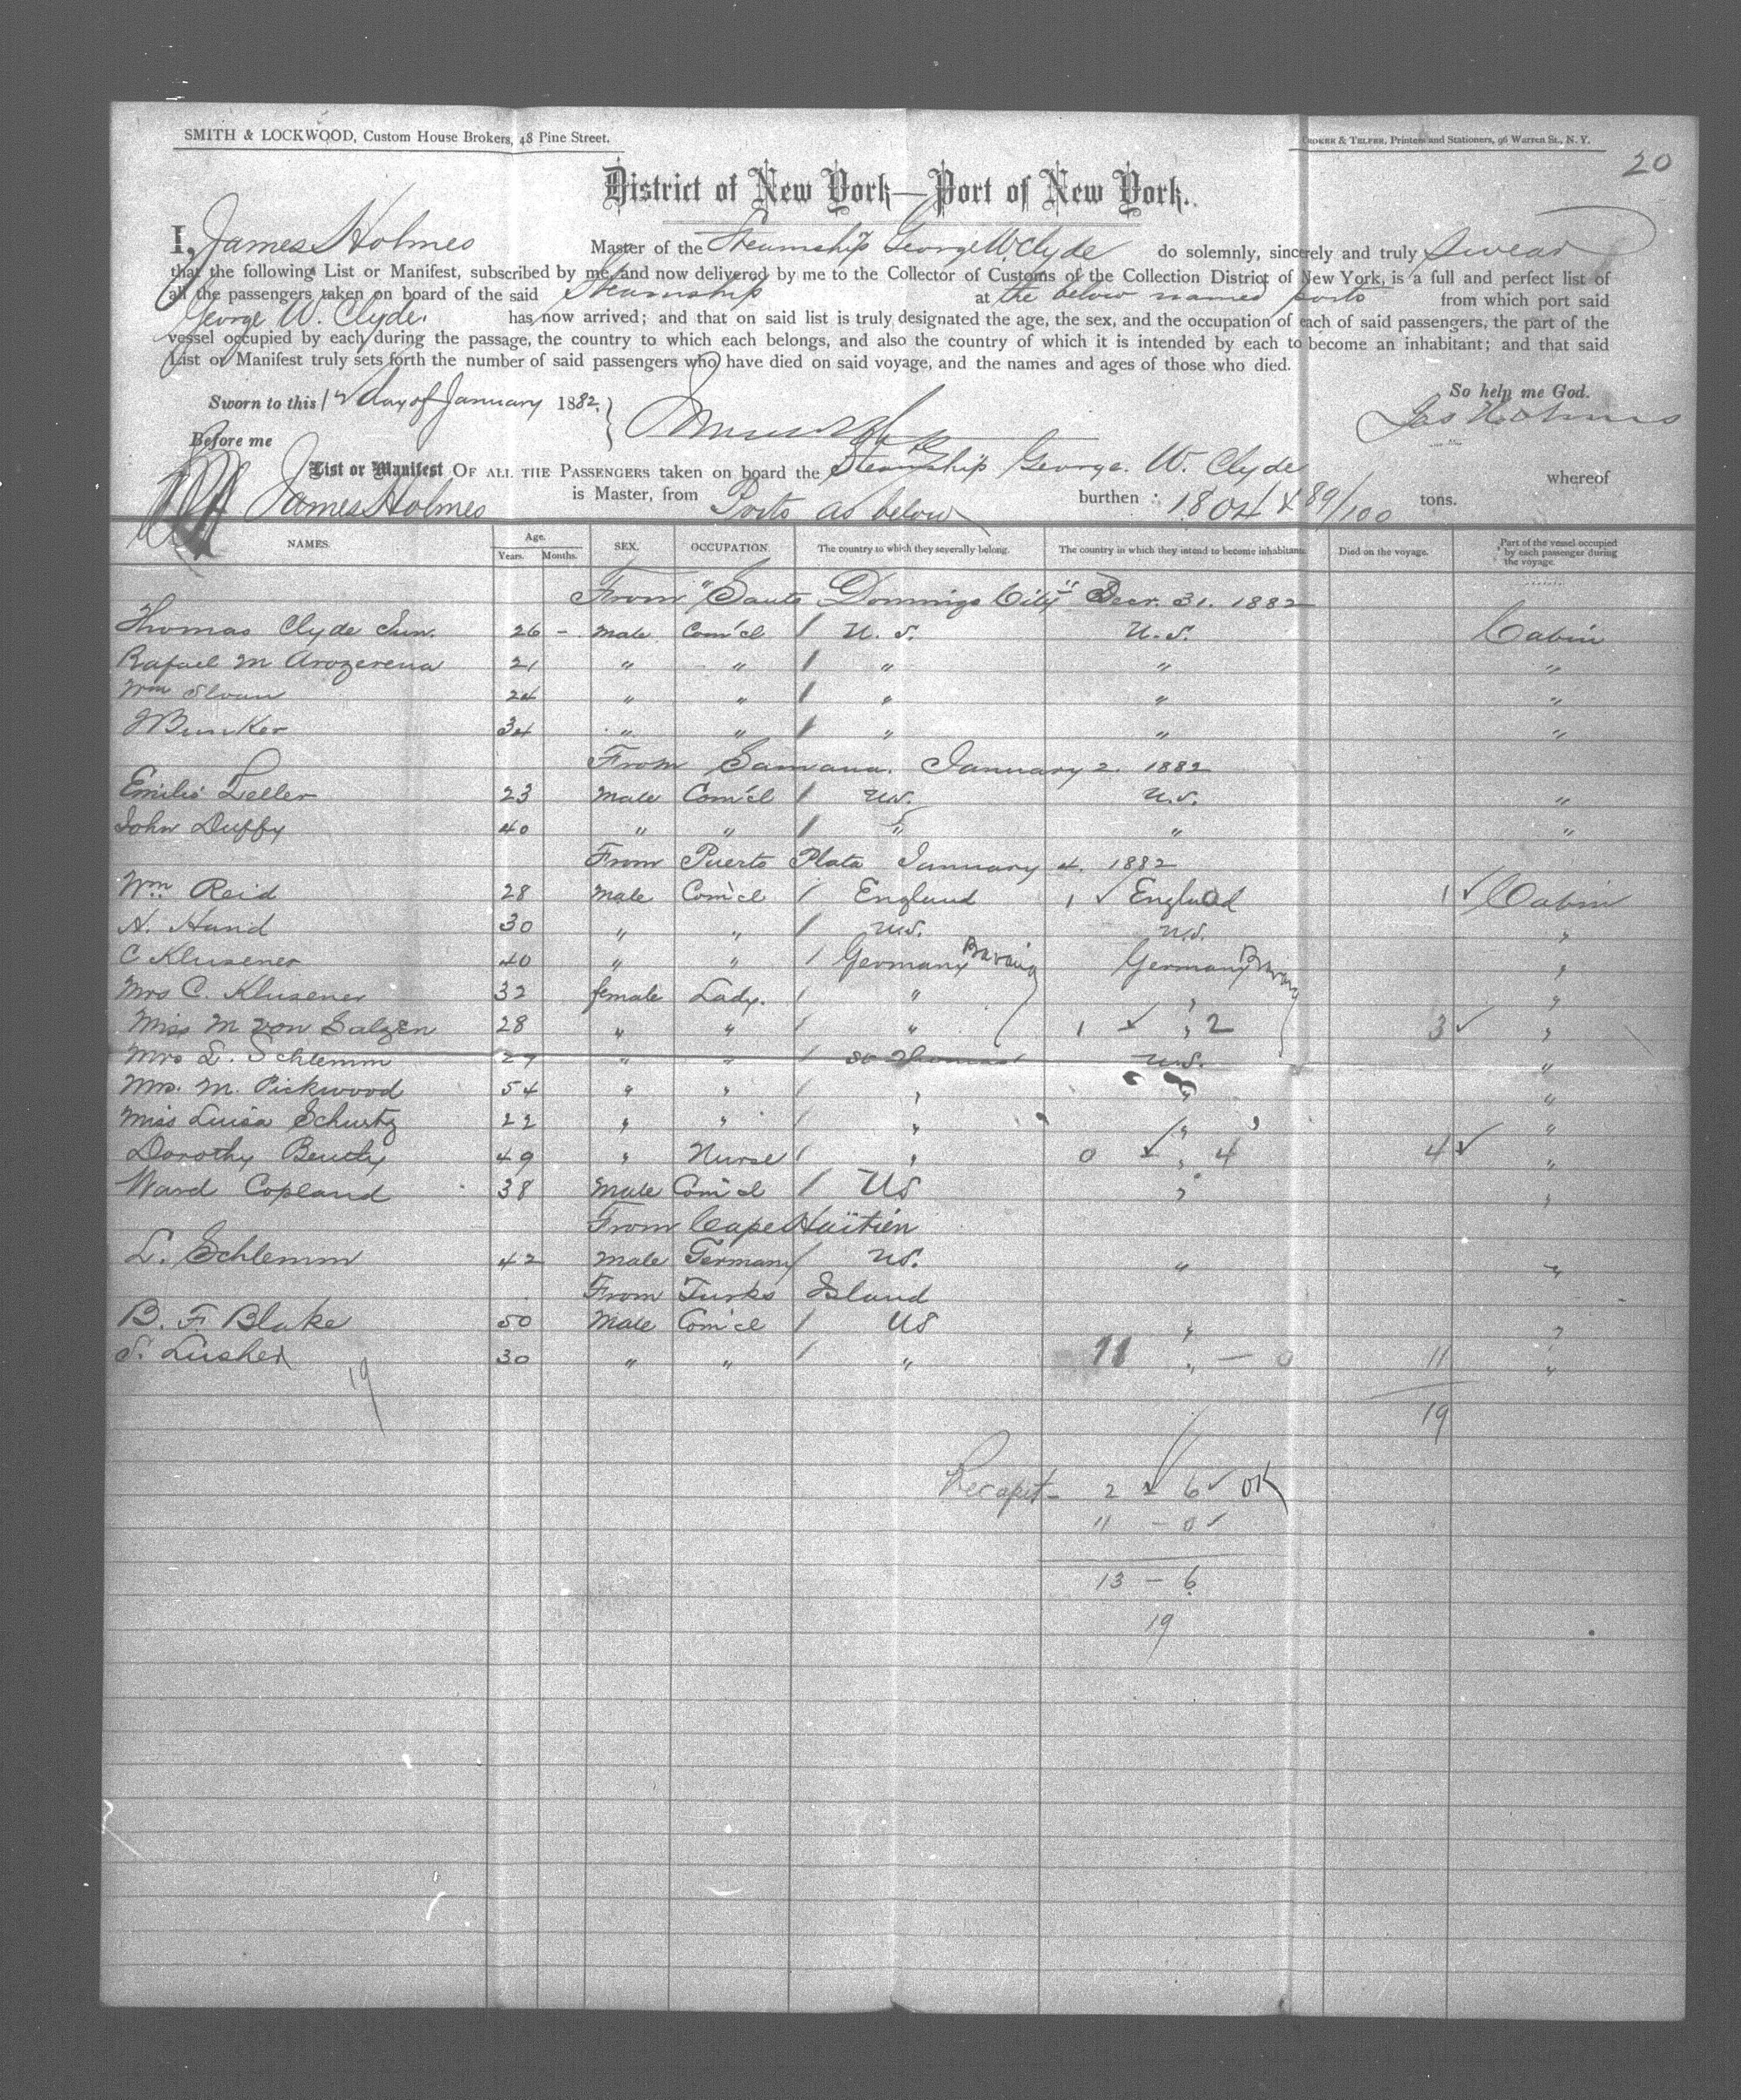 SMITH & LOCKWOOD, Custom House Brokers, 48 Pine Street.
CROKER & TELFER, Printers and Stationers, 96 Warren St., N. Y.
20
District of New York—Port of New York.
I, James Holmes Master of the Steamship George W. Clyde do solemnly, sincerely and truly swear
that the following List or Manifest, subscribed by me, and now delivered by me to the Collector of Customs of the Collection District of New York, is a full and perfect list of
all the passengers taken on board of the said Steamship at the below named ports from which port said
George W. Clyde. has now arrived; and that on said list is truly designated the age, the sex, and the occupation of each of said passengers, the part of the
vessel occupied by each during the passage, the country to which each belongs, and also the country of which it is intended by each to become an inhabitant; and that said
List or Manifest truly sets forth the number of said passengers who have died on said voyage, and the names and ages of those who died.
So help me God.
Sworn to this 12 day of January 1882,
Jas Holmes
Before me
List or Manifest OF ALL THE PASSENGERS taken on board the Steamship George. W. Clyde whereof
James Holmes is Master, from Ports as below burthen : 1804 & 89/100 tons.
NAMES. Age. Years. Months. SEX. OCCUPATION. The country to which they severally belong. The country in which they intend to become inhabitants. Died on the voyage. Part of the vessel occupied by each passenger during the voyage.
From "Santo Domingo City" Decr. 31. 1882
Thomas Clyde Jun. 26 - Male Com'cl / U. S. U. S. Cabin
Rafael M Arozerena 21 " " / " " "
Wm Sloan 24 " " / " " "
J Buncker 34 " " / " " "
From Samana. January 2. 1882
Emilio Zeller 23 Male Com'cl / U.S. U.S. "
John Duffy 40 " " / " " "
From Puerto Plata January 4. 1882
Wm. Reid 28 Male Com'cl / England 1 ✓ England 1 ✓ Cabin
A. Hand 30 " " / U.S. U.S. "
C Klusener 40 " " / Germany Germany "
Mrs C. Klusener 32 female Lady. / " " "
Miss M von Salzen 28 " " / " 1 ✓ " 2 3 ✓ "
Mrs L. Schlemm 27 " " / St Thomas U.S. "
Mrs. M. Pickwood 54 " " / " " "
Miss Luisa Schurtz 22 " " / " " "
Dorothy Beuty 49 " Nurse / " 0 ✓ " 4 4 ✓ "
Ward Copland 38 Male Com'cl / US " "
From Cape Haïtien
L. Schlemm 42 Male Germany / US. " "
From Turks Island
B. F Blake 50 Male Com'cl / US " "
S. Lusher 30 " " / " 11 " — 0 11 "
19
19
Recapit- 2 ✓ 6 ✓ OK
11 - 0 ✓
13 - 6
19